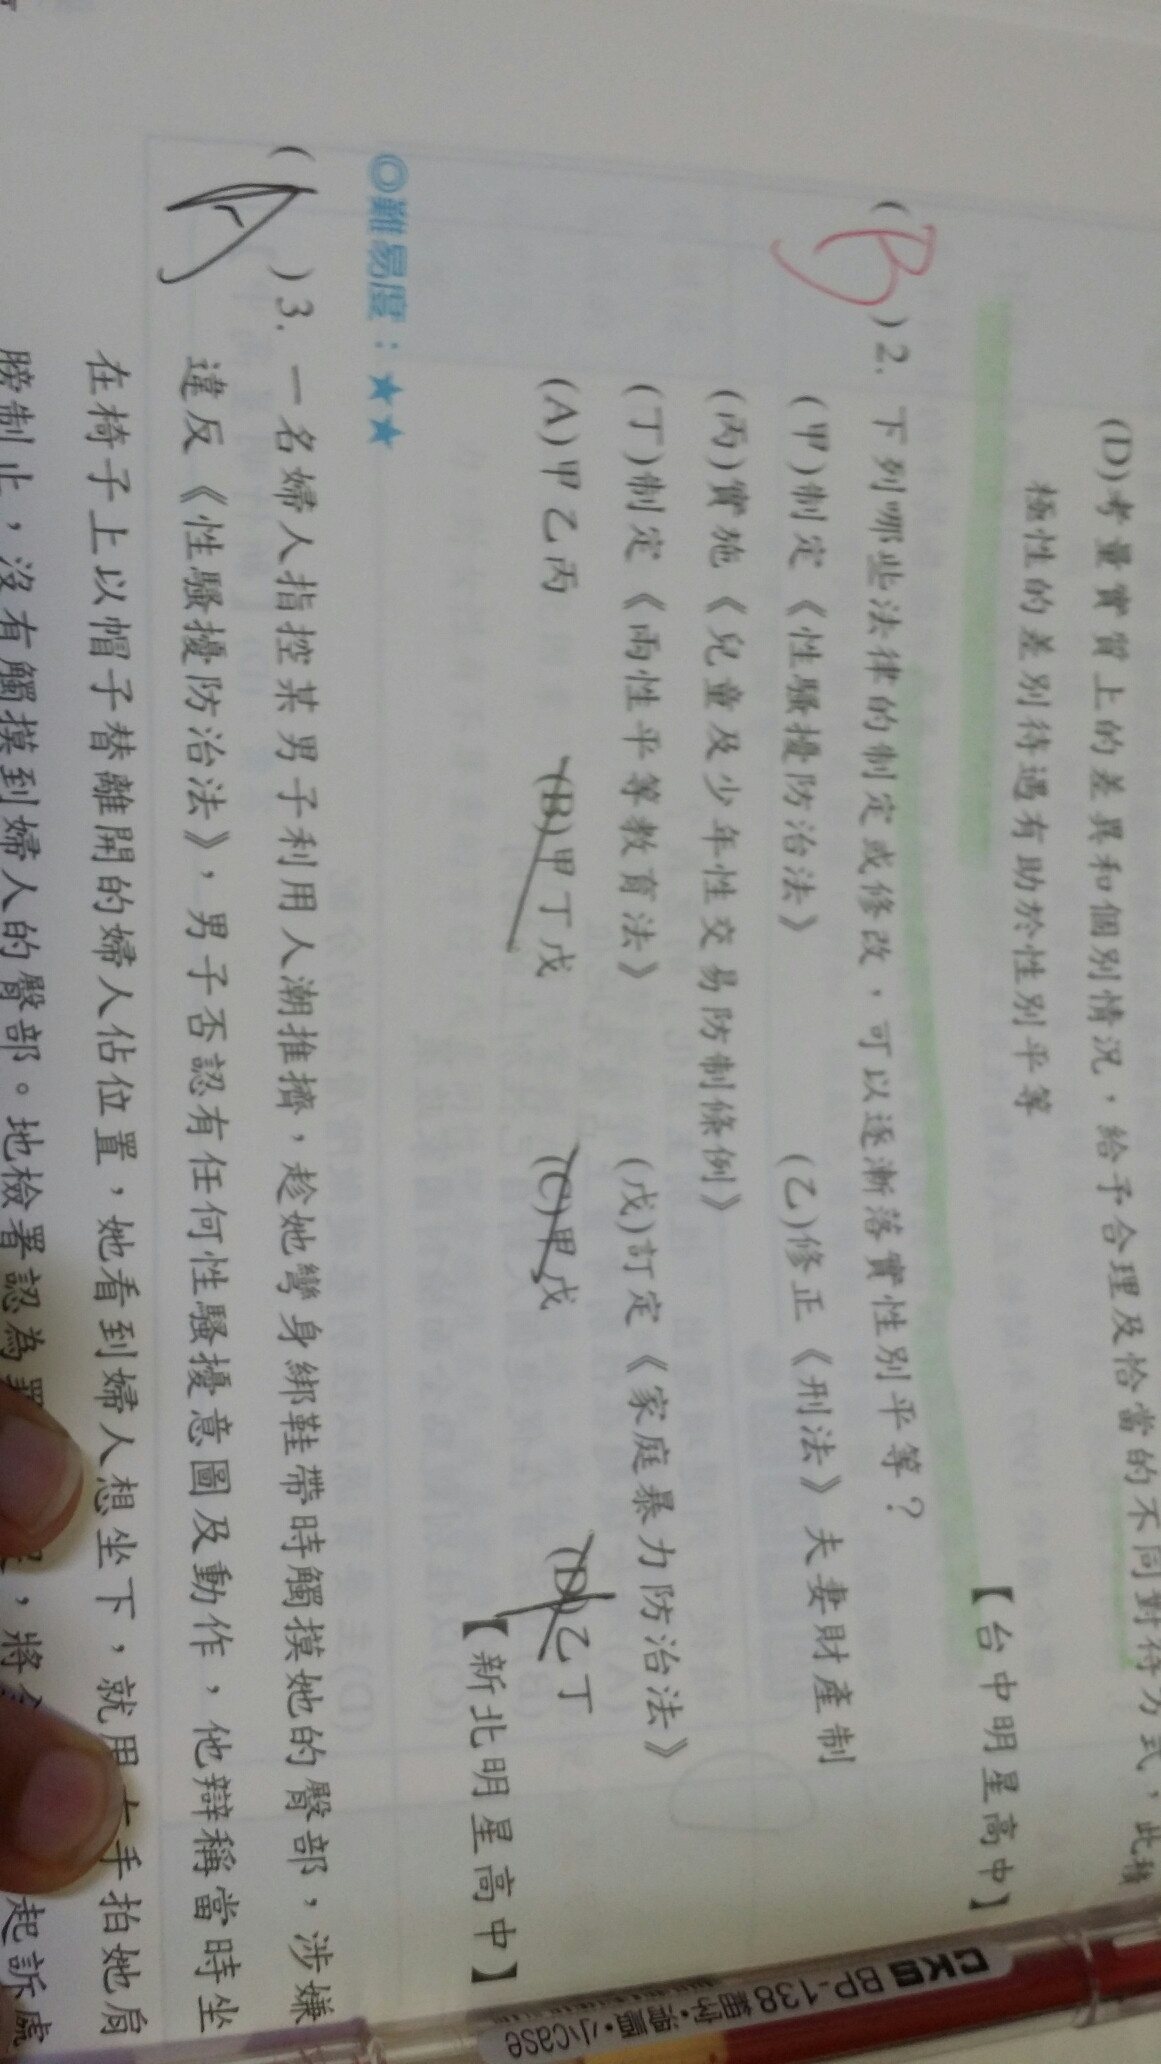 (D)考量實質上的差異和個別情況，給予合理及恰當的不同對待方式，此積
極性的差別待遇有助於性別平等
【台中明星高中】
(B)2. 下列哪些法律的制定或修改，可以逐漸落實性別平等？
(甲)制定《性騷擾防治法》 (乙)修正《刑法》夫妻財產制
(丙)實施《兒童及少年性交易防制條例》
(丁)制定《兩性平等教育法》 (戊)訂定《家庭暴力防治法》
(A)甲乙丙 (B)甲丁戊 (C)甲戊 (D)乙丁
【新北明星高中】
◎難易度：★★
(A)3. 一名婦人指控某男子利用人潮推擠，趁她彎身綁鞋帶時觸摸她的臀部，涉嫌
違反《性騷擾防治法》，男子否認有任何性騷擾意圖及動作，他辯稱當時坐
在椅子上以帽子替離開的婦人佔位置，她看到婦人想坐下，就用 手拍她肩
膀制止，沒有觸摸到婦人的臀部。地檢署認為 ，將 起訴處
CKS BP-138 順手·滑順·小case